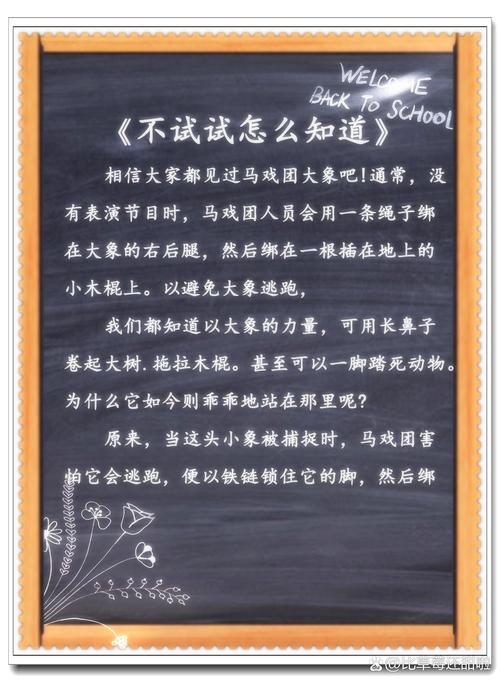 WELCOME
BACK TO SCHOOL
《不试试怎么知道》
相信大家都见过马戏团大象吧！通常，没
有表演节目时，马戏团人员会用一条绳子绑
在大象的右后腿，然后绑在一根插在地上的
小木棍上。以避免大象逃跑，
我们都知道以大象的力量，可用长鼻子
卷起大树.拖拉木棍。甚至可以一脚踏死动物。
为什么它如今则乖乖地站在那里呢?
原来，当这头小象被捕捉时，马戏团害
怕它会逃跑，便以铁链锁住它的脚，然后绑
@比草莓还甜啦